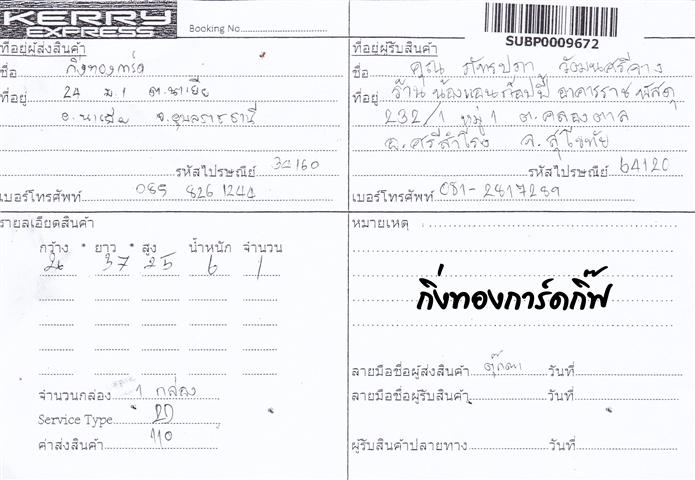 KERRY
EXPRESS
Booking No.
SUBP0009672
ที่อยู่ผู้ส่งสินค้า
ชื่อ กิ่งทองการ์ด
ที่อยู่ 24 ม.1 ต.นาเยีย
อ.นาเยีย จ.อุบลราชธานี
รหัสไปรษณีย์ 34160
เบอร์โทรศัพท์ 085 826 1244
ที่อยู่ผู้รับสินค้า
ชื่อ คุณ ภัทรปภา
ที่อยู่ ร้าน น้องแอนก๊อปปี้ อาคารราชพัสดุ
232/1 หมู่ 1 ต.คลองตาล
อ.ศรีสำโรง จ.สุโขทัย
รหัสไปรษณีย์ 64120
เบอร์โทรศัพท์ 081-2817289
รายละเอียดสินค้า
กว้าง * ยาว * สูง น้ำหนัก จำนวน
26 37 25 6 1
จำนวนกล่อง 1 กล่อง
Service Type 2D
ค่าส่งสินค้า 110
หมายเหตุ
กิ่งทองการ์ดกิ๊ฟ
ลายมือชื่อผู้ส่งสินค้า ตุ๊กตา วันที่
ลายมือชื่อผู้รับสินค้า วันที่
ผู้รับสินค้าปลายทาง วันที่